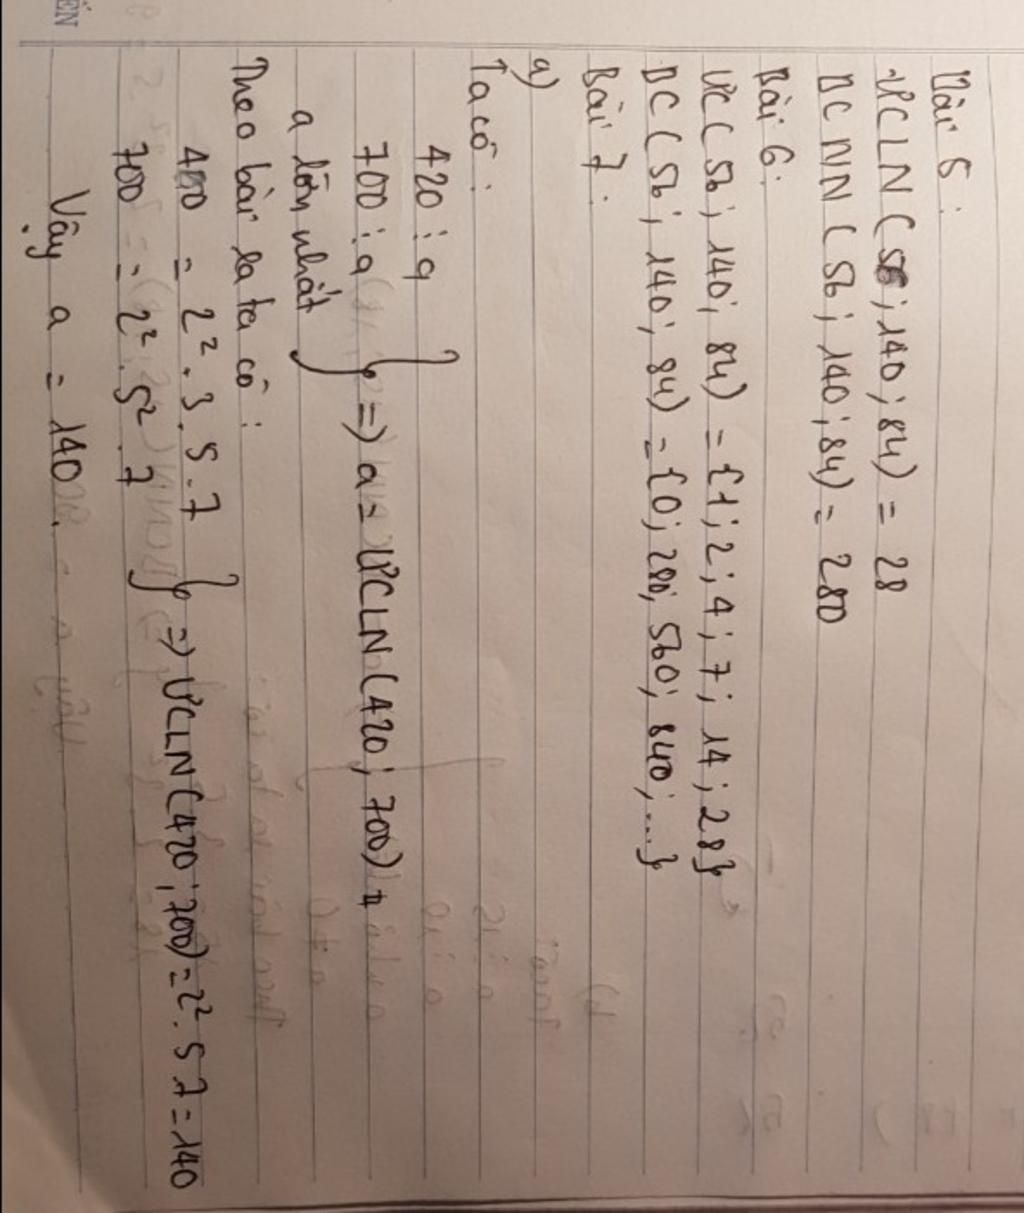 Bài 5:
ƯCLN (56; 140; 84) = 28
BCNN (56; 140; 84) = 280
Bài 6:
ƯC (56; 140; 84) = {1; 2; 4; 7; 14; 28}
BC (56; 140; 84) = {0; 280; 560; 840; ...}
Bài 7:
a)
Ta có:
420 ⋮ a
700 ⋮ a } => a = ƯCLN (420; 700)
a lớn nhất
Theo bài ra ta có:
400 = 2². 3. 5. 7
700 = 2². 5². 7 } => ƯCLN (420; 700) = 2². 5 7 = 140
Vậy a = 140.